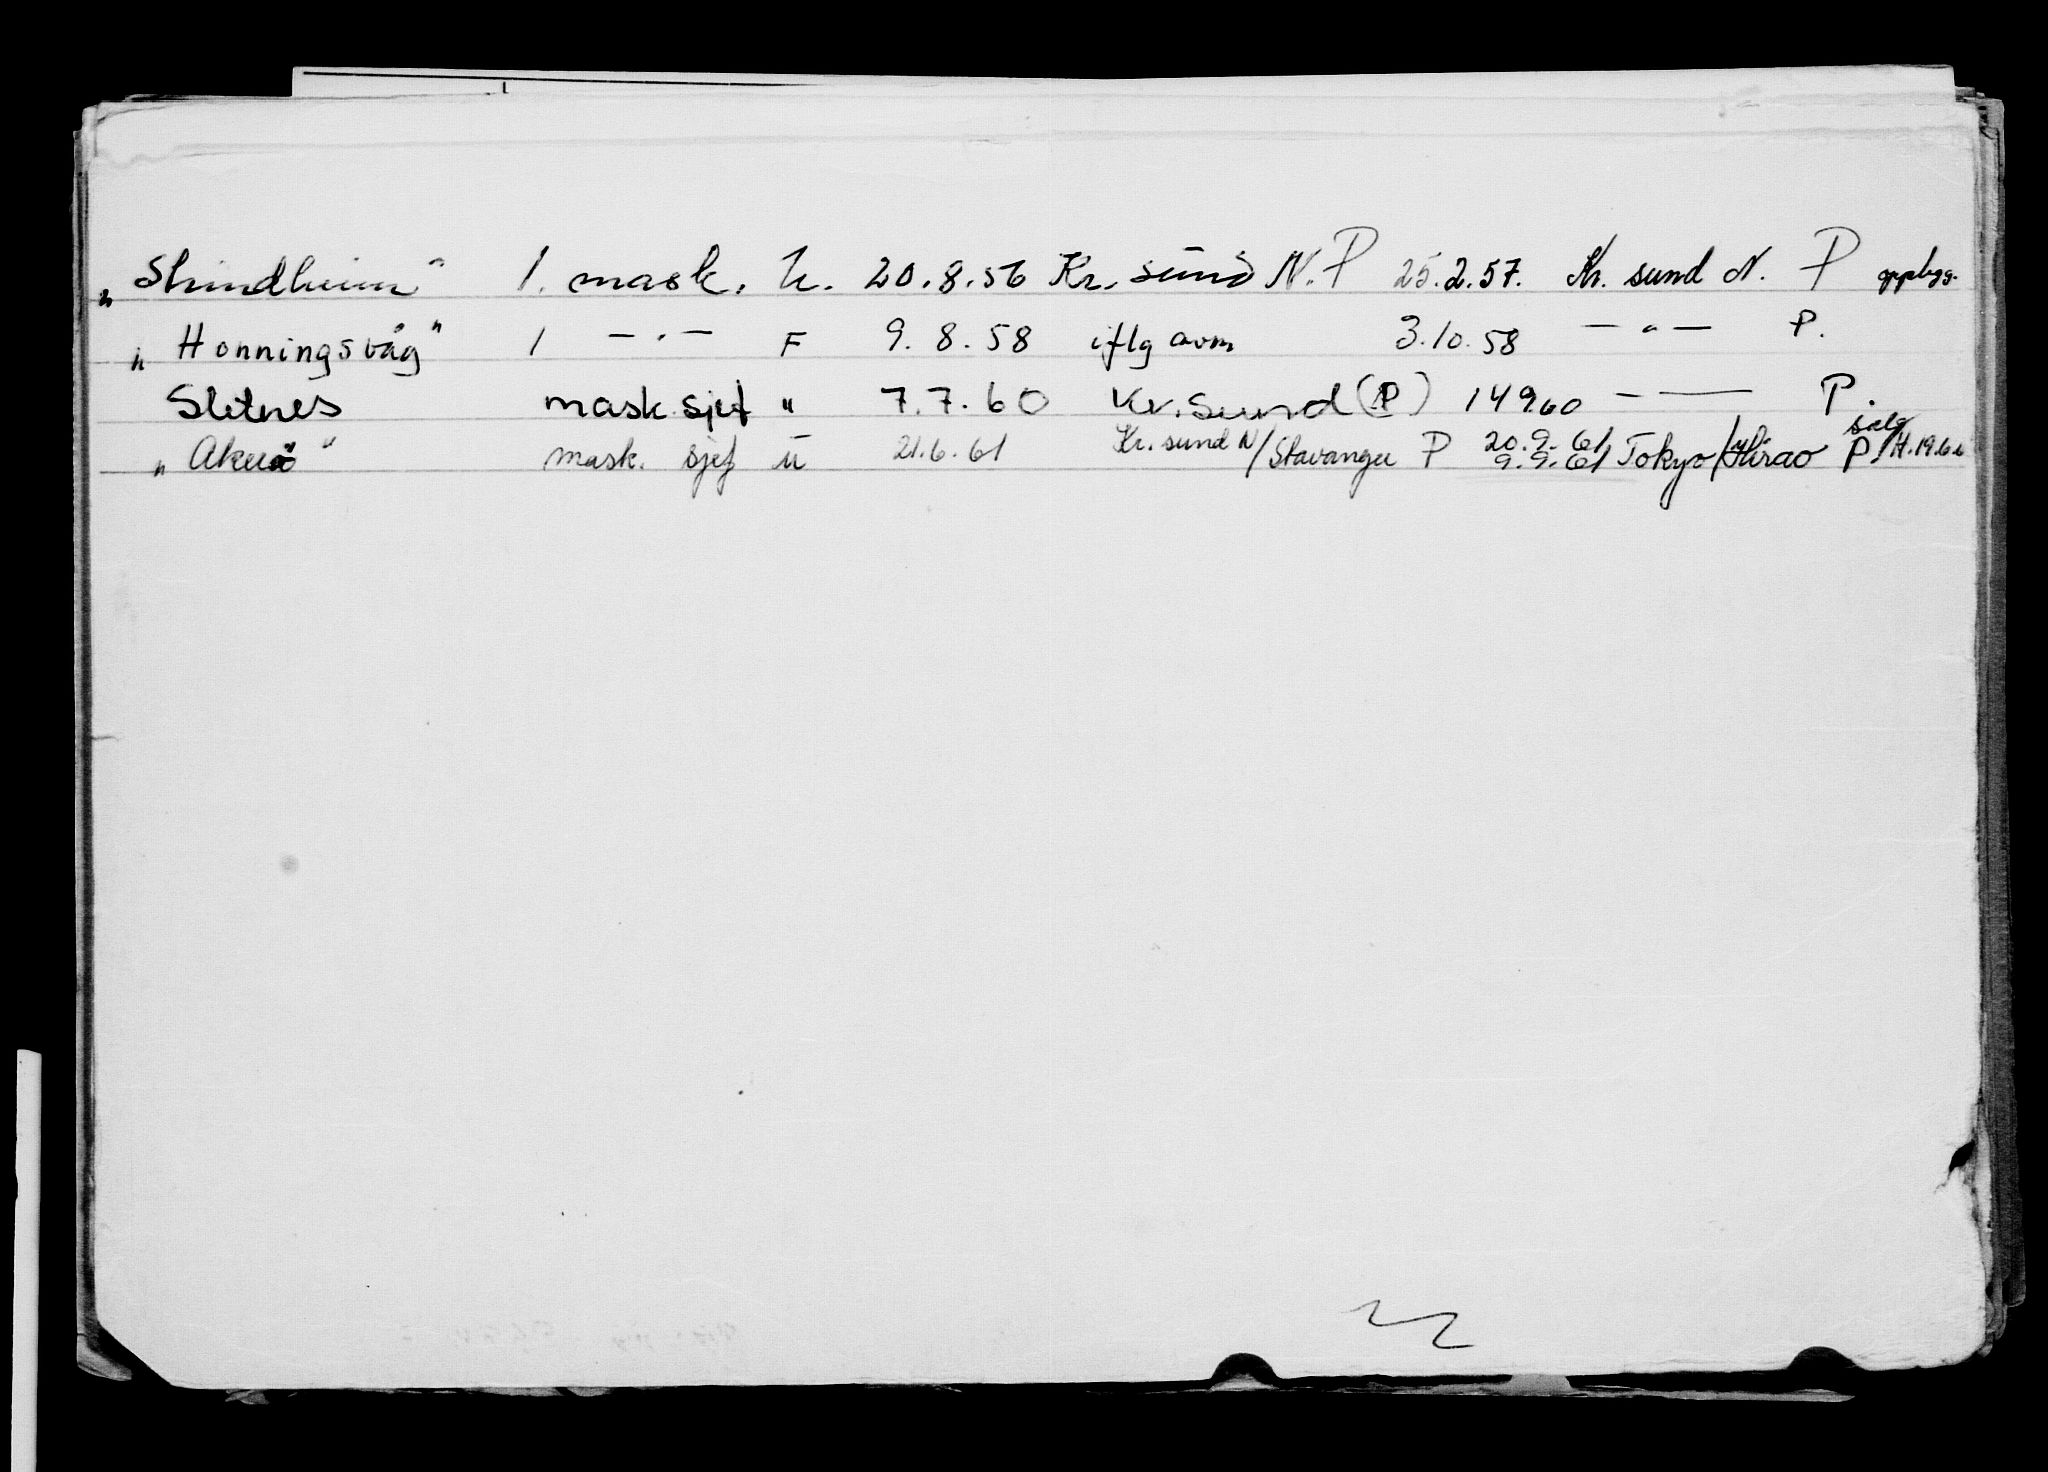 „Strindheim" 1. mask. U. 20.8.56 Kr. sund N. P 25.2.57. Kr. sund N. P oppbygg.
„Honningsvåg" 1 — " — F 9.8.58 iflg avm 3.10.58 — " — P.
Sletnes mask sjef " 7.7.60 Kr. sund (P) 14960 — — P.
„Akerø" mask. sjef U 21.6.61 Kr. sund N/Stavanger P 20.9.61 9.9.61 Tokyo/Hirao P/ salg H.19.6.6